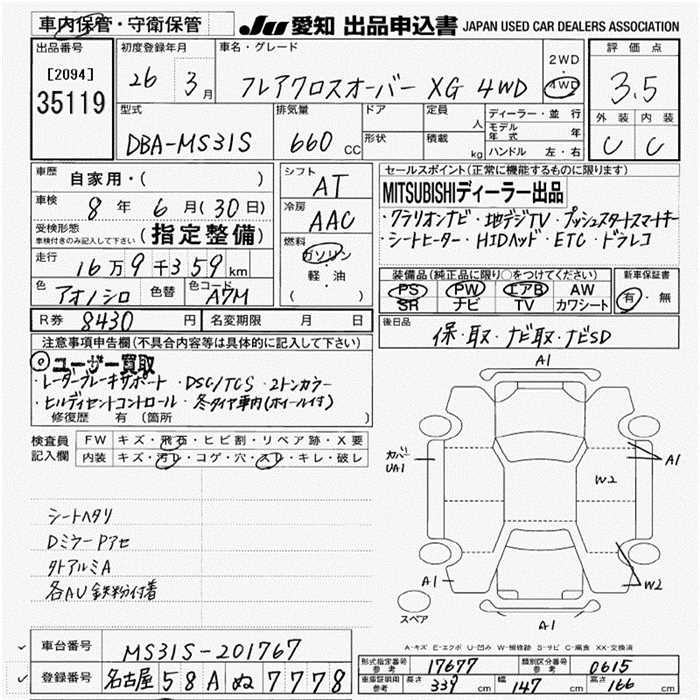 車内保管・守衛保管
JU 愛知 出品申込書 JAPAN USED CAR DEALERS ASSOCIATION
出品番号 [2094] 35119
初度登録年月 26 3月
車名・グレード フレアクロスオーバー XG 4WD
2WD・4WD
評価点 3.5
外装 内装
C C
型式 DBA-MS31S
排気量 660 CC
ドア 形状
定員 人 積載 kg
ディーラー・並行
モデル年式 年
ハンドル 左・右
車歴 自家用・( )
車検 8年 6月(30日)
受検形態 車検付きのみ記入して下さい (指定整備)
走行 16万9千359km
色 アオノシロ 色替 色コード A7M
シフト AT
冷房 AAC
燃料 ガソリン
軽・油
( )
セールスポイント(正常に機能するものに限ります)
MITSUBISHIディーラー出品
・クラリオンナビ・地デジTV・プッシュスタートスマートキー
・シートヒーター・HIDヘッド・ETC・ドラレコ
装備品(純正品に限り○をつけてください)
PS PW エアB AW
SR ナビ TV カワシート
新車保証書
有・無
R券 8430円 名変期限 月 日
後日品 保・取・ナビ取・ナビSD
注意事項申告欄(不具合内容等は具体的に記入して下さい)
ユーザー買取
・レーダーブレーキサポート・DSC/TCS・2トンカラー
・ヒルディセントコントロール・冬タイヤ車内(ホイール付)
修復歴 有 (箇所 )
検査員記入欄
FW キズ・飛石・ヒビ割・リペア跡・X要
内装 キズ・汚レ・コゲ・穴・スレ・キレ・破レ
シートヘタリ
DミラーPアセ
タトアルミA
各AU鉄粉付着
A1
カバー UA1
A1
W2
A1
W2
A1
スペア
A-キズ E-エクボ U-凹み W-補修跡 S-サビ C-腐食 XX-交換済
車台番号 MS31S-201767
登録番号 名古屋 58A ぬ 7778
形式指定番号 参考 17677
類別区分番号 参考 0615
車庫証明用 参考 長さ 339cm 幅 147cm 高さ 166cm